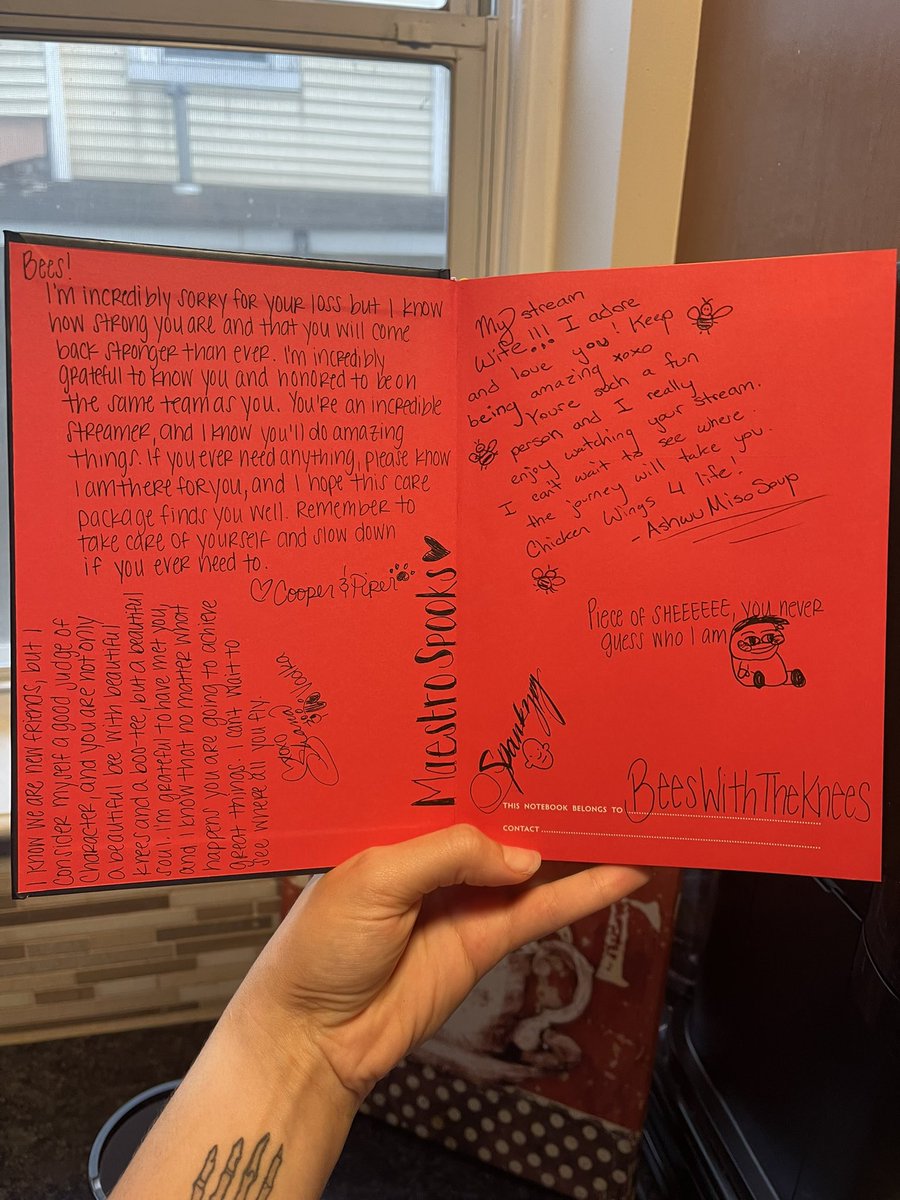 Bees!
I'm incredibly sorry for your loss but I know
how strong you are and that you will come
back stronger than ever. I'm incredibly
grateful to know you and honored to be on
the same team as you. You're an incredible
streamer, and I know you'll do amazing
things. If you ever need anything, please know
I am there for you, and I hope this care
package finds you well. Remember to
take care of yourself and slow down
if you ever need to.
Cooper & Piper
I know we are new friends, but I
consider myself a good judge of
character, and you are not only
a beautiful bee with beautiful
knees and a boo-tee, but a beautiful
soul. I'm grateful to have met you,
and I know that no matter what
happens you are going to achieve
great things. I can't wait to
see where all you fly.
xoxo
MaestroSpooks
My stream
wife!!! I adore
and love you! Keep
being amazing xoxo
You're such a fun
person and I really
enjoy watching your stream.
I can't wait to see where
the journey will take you.
Chicken Wings 4 life!
- AshwuMisoSoup
Piece of SHEEEEE, you never
guess who I am
Spankyyy
THIS NOTEBOOK BELONGS TO BeesWithTheKnees
CONTACT